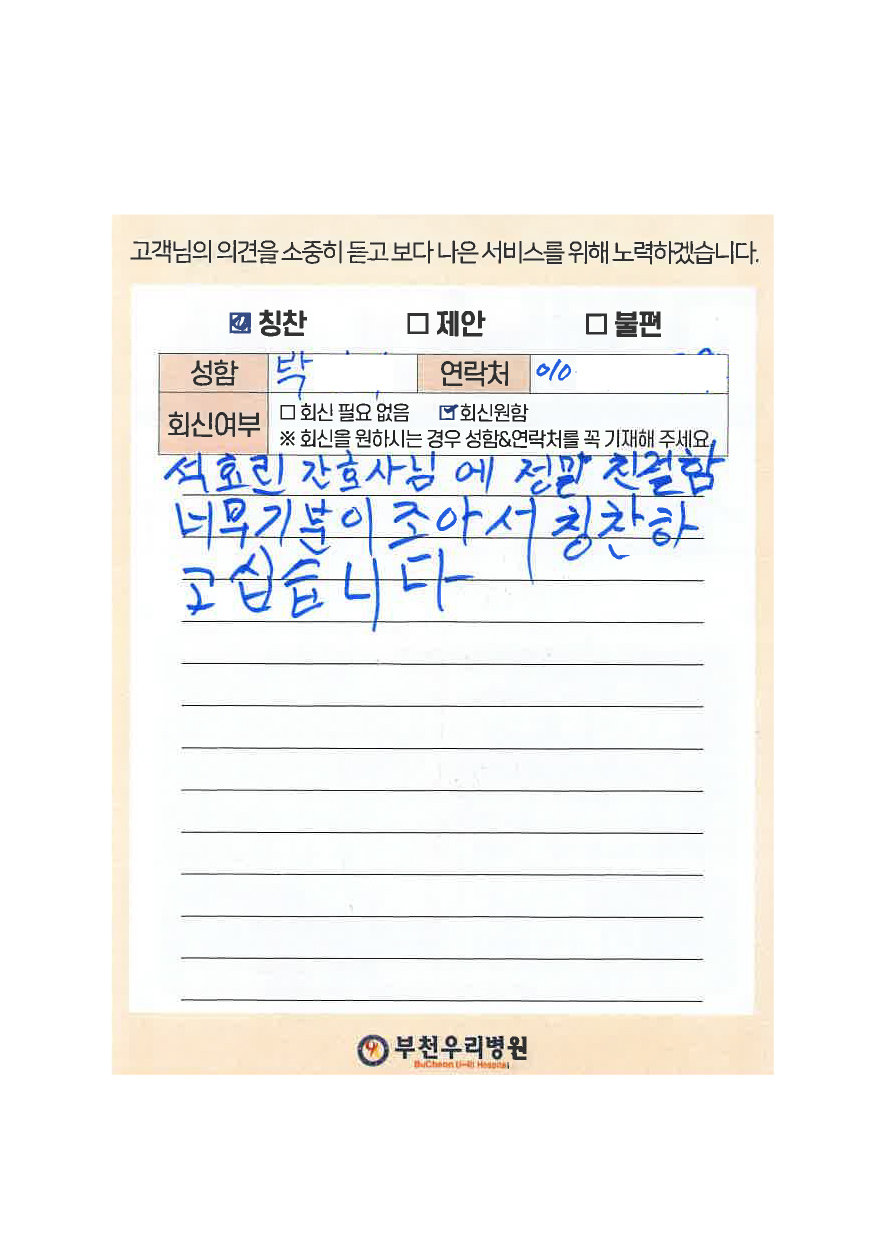 고객님의 의견을 소중히 듣고 보다 나은 서비스를 위해 노력하겠습니다.
칭찬 제안 불편
성함 박 연락처 010
회신여부 회신 필요 없음 회신원함
※ 회신을 원하시는 경우 성함&연락처를 꼭 기재해 주세요.
석효린 간호사님 에 정말 친절함
너무기분이 조아서 칭찬하
고십습니다
부천우리병원
BuCheon U-Ri Hospital